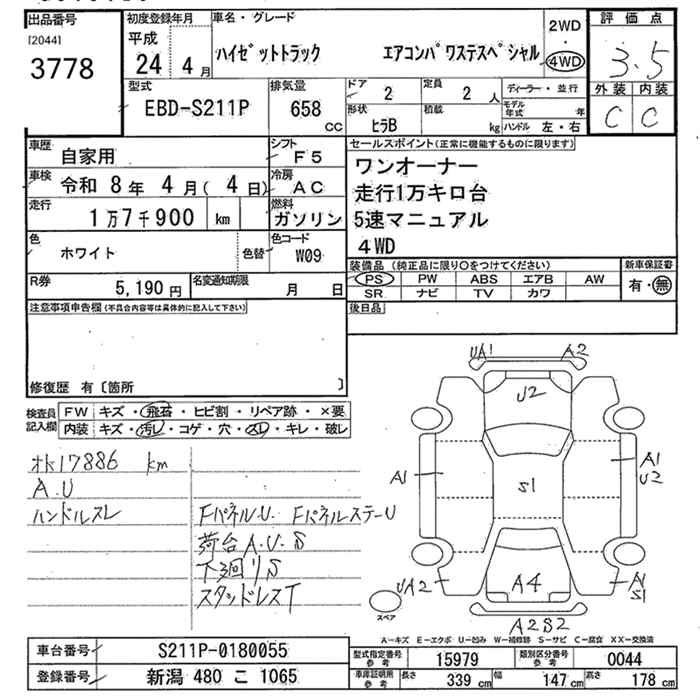 出品番号
[2044]
3778
初度登録年月
平成
24 4 月
車名・グレード
ハイゼットトラック エアコンパワステスペシャル
2WD
・
4WD
評価点
3.5
外装 内装
C C
型式
EBD-S211P
排気量
658
cc
ドア
2
定員
2 人
ディーラー・並行
形状
ヒラB
積載
kg
モデル年式 年
ハンドル 左・右
車歴
自家用
シフト
F5
セールスポイント(正常に機能するものに限ります)
ワンオーナー
走行1万キロ台
5速マニュアル
4WD
車検
令和 8 年 4 月 ( 4 日)
冷房
AC
走行
1万7千900 km
燃料
ガソリン
色
ホワイト
色替
色コード
W09
R券
5,190 円
名変通知期限
月 日
装備品(純正品に限り○をつけてください)
PS PW ABS エアB AW
SR ナビ TV カワ
新車保証書
有・無
後日品
注意事項申告欄(不具合内容等は具体的に記入して下さい)
修復歴 有〔箇所 〕
検査員
記入欄
FW キズ・飛石・ヒビ割・リペア跡・×要
内装 キズ・汚レ・コゲ・穴・スレ・キレ・破レ
17886 km
A.U
ハンドルスレ
FパネルU. FパネルステーU
荷台A.U.S
下廻りS
スタッドレスT
UA1 A2
U2
A1
A1
U2
S1
UA2
A4
A1
S1
A2S2
スペア
A-キズ E-エクボ U-凹み W-補修跡 S-サビ C-腐食 XX-交換済
車台番号
S211P-0180055
登録番号
新潟 480 こ 1065
型式指定番号
参考
15979
類別区分番号
参考
0044
車庫証明用
参考
長さ 339 cm 幅 147 cm 高さ 178 cm